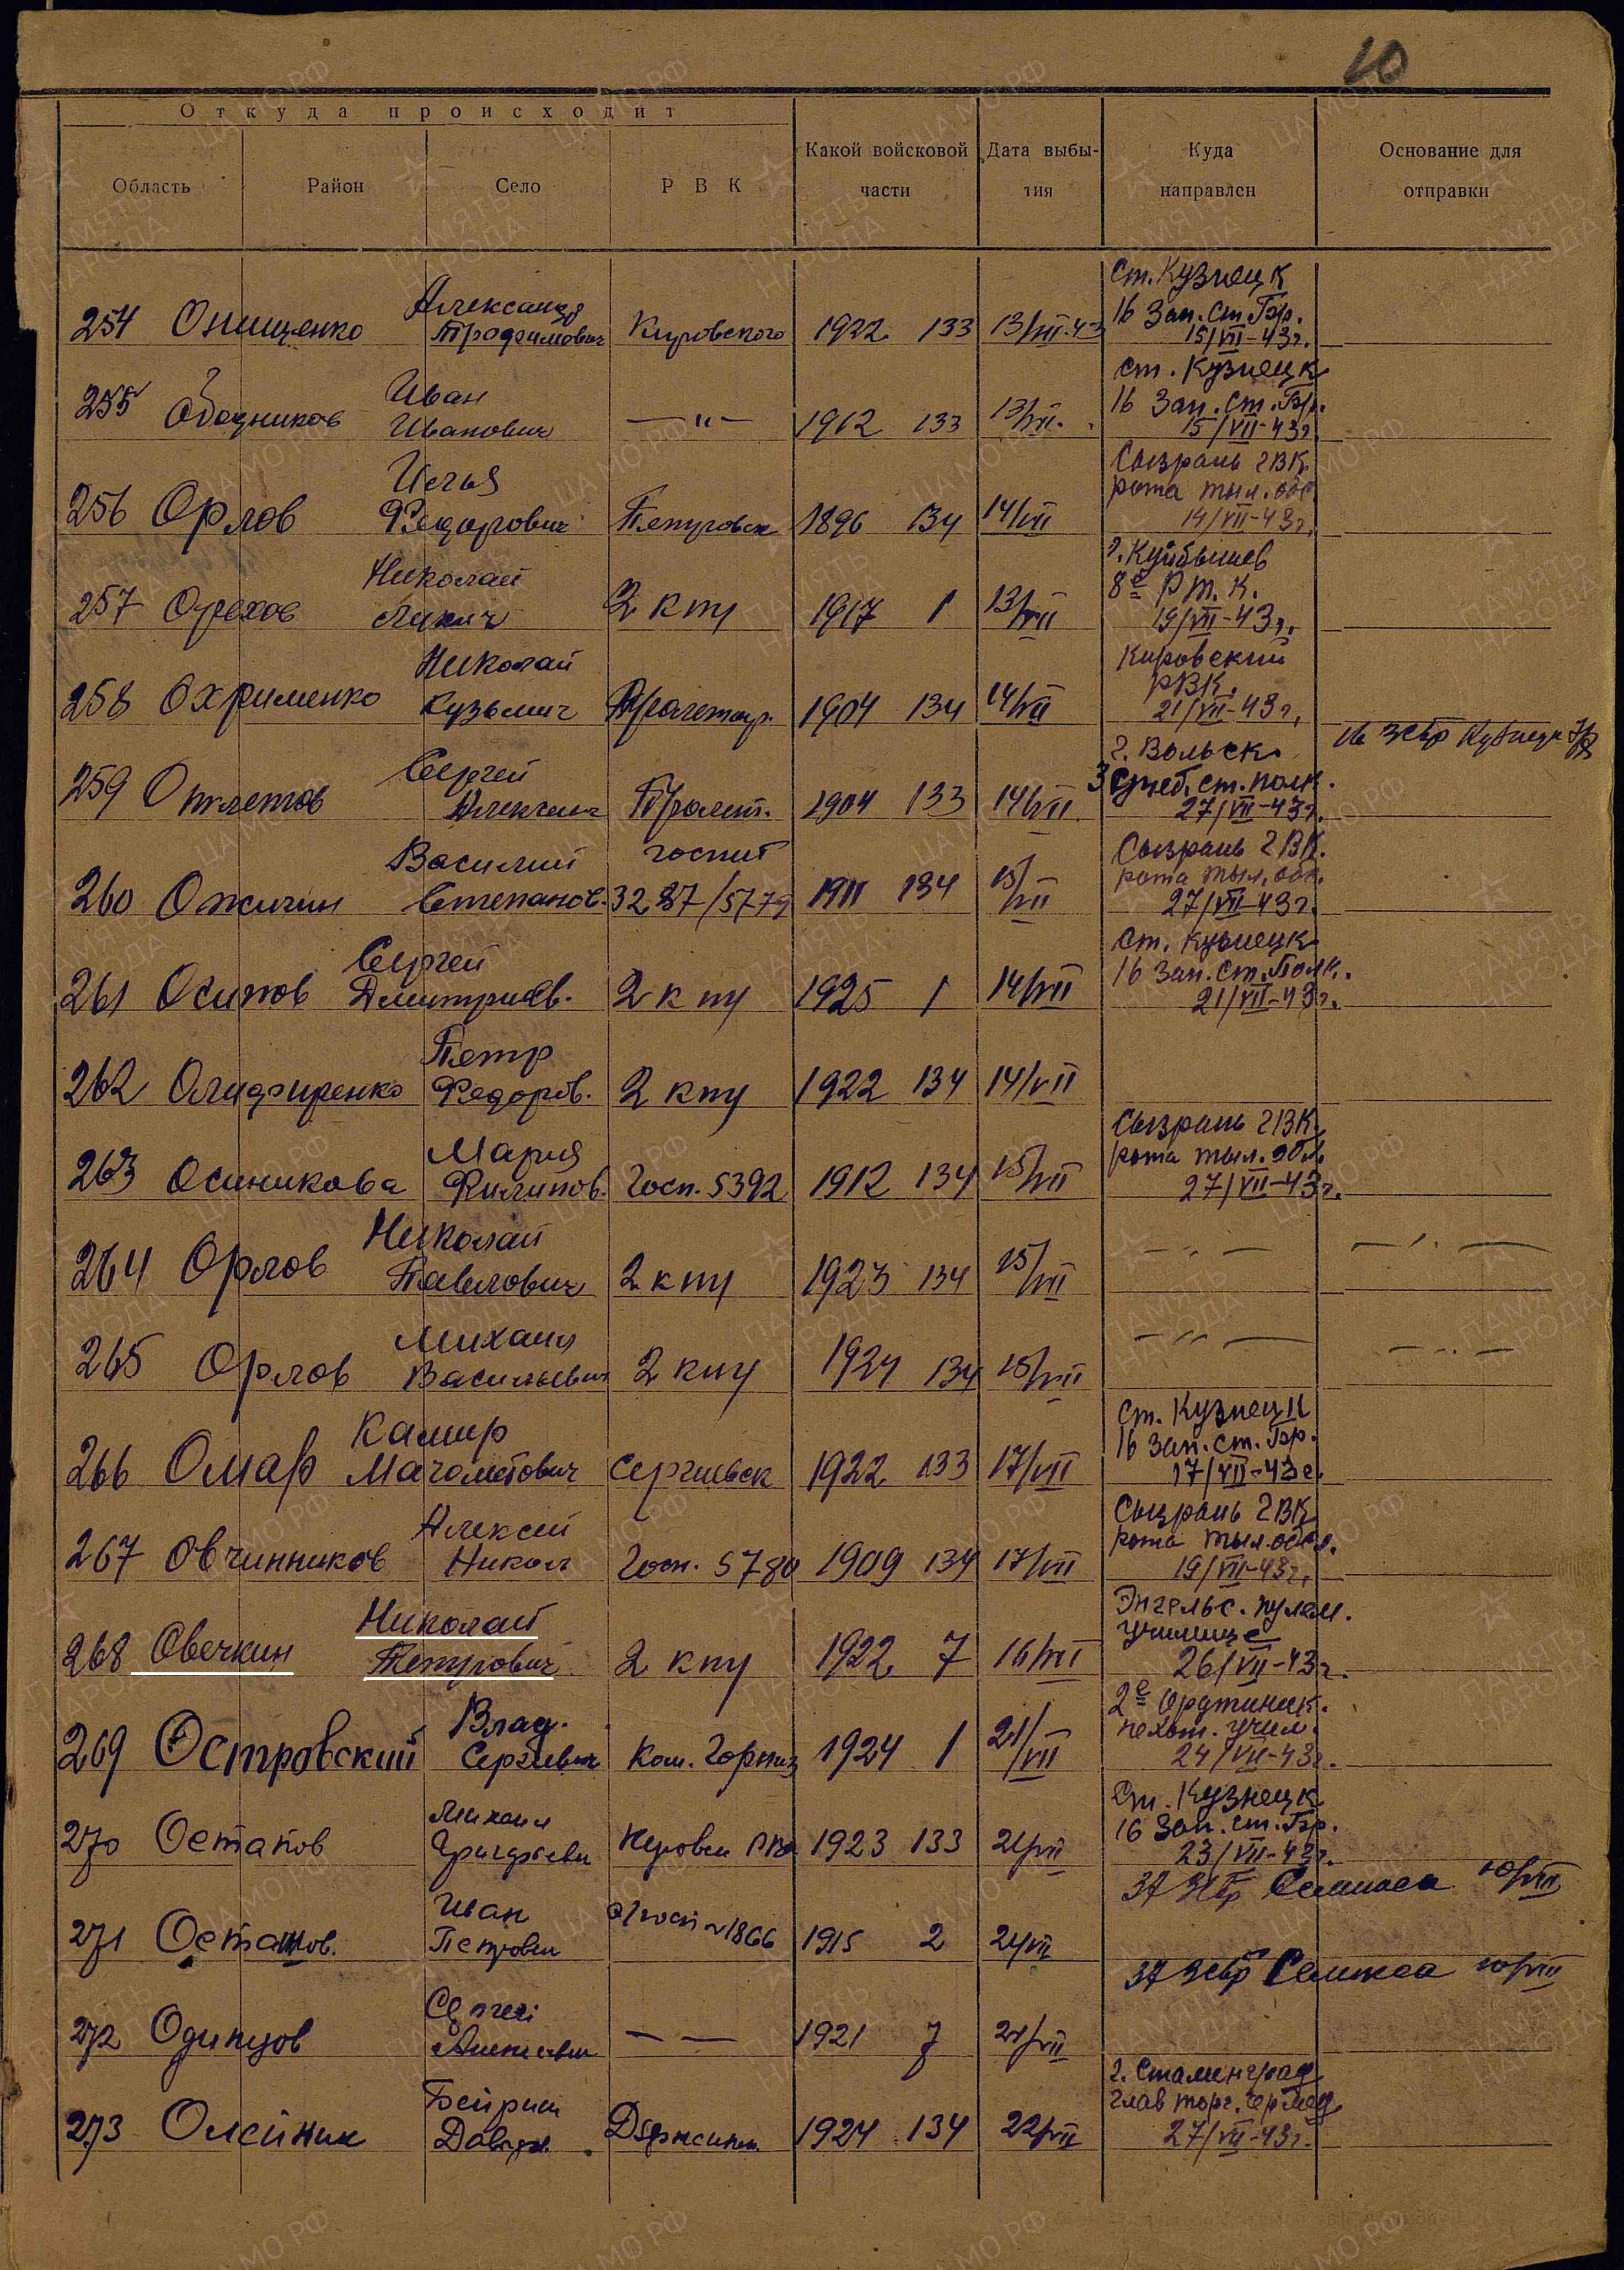 10
Откуда происходит
Область Район Село РВК Какой войсковой части Дата выбытия Куда направлен Основание для отправки
ст. Кузнецк
Александр 16 Зап. ст. бр.
254 Онищенко Трофимович Кировского 1922 133 13/VII-43 15/VII-43г.
Иван ст. Кузнецк
255 Иванович —"— 1912 133 13/VII. 16 Зап. ст. бр.
15/VII-43г.
Илья Сызрань ГВК
256 Орлов Федорович Петровск 1896 134 14/VII рота тыл. обс.
14/VII-43г.
Николай г. Куйбышев
257 Орехов 2 кпу 1917 1 13/VII 8е Р.т.к.
19/VII-43г.
Николай Кировский
258 Охрименко Кузьмич Пролетар. 1904 134 14/VII РВК.
21/VII-43г.
Сергей г. Вольск 16 ЗСбр Кузнецк
259 Отлетов Пролет. 1904 133 14/VII 3 Учеб. ст. полк.
27/VII-43г.
Василий госпит Сызрань ГВК.
260 Ожигин Степанов. 3287/5779 1911 134 15/VII рота тыл. обс.
27/VII-43г.
Сергей ст. Кузнецк
261 Осипов Дмитриев. 2 кпу 1925 1 14/VII 16 Зап. ст. Полк.
21/VII-43г.
Петр
262 Олифиренко Федоров. 2 кпу 1922 134 14/VII
Мария Сызрань ГВК.
263 Осиникова Филипов. Госп. 5392 1912 134 15/VII рота тыл. обсл.
27/VII-43г.
Николай
264 Орлов Павлович 2 кпу 1923 134 15/VII —"— —"—
Михаил
265 Орлов Васильевич 2 кпу 1924 134 15/VII —"— —"—
Камир ст. Кузнецк
266 Омар Магометович Сергиевск 1922 133 17/VII 16 Зап. ст. бр.
17/VII-43г.
Алексей Сызрань ГВК
267 Овчинников Никол Госп. 5780 1909 134 17/VII рота тыл. обсл.
19/VII-43г.
Николай Энгельс. пулем.
268 Овечкин Петрович 2 кпу 1922 7 16/VII училище
26/VII-43г.
Влад. 2е Орджиник.
269 Островский Сергеевич Ком. Горниз 1924 1 21/VII пехот. учил.
24/VII-43г.
Михаил ст. Кузнецк
270 Остапов Кировск РВК 1923 133 21/VII 16 Зап. ст. бр.
23/VII-43г.
Иван 37 ЗСбр Селикса 10/VIII
271 Осташов. Петрович 1866 1915 2 21/VII
37 ЗСбр Селикса 10/VIII
Сергей
272 Одинцов Алексеевич — — 1921 7 21/VII
г. Сталинград
273 Олейник Давидов. Дзержинск. 1924 134 22/VII
27/VII-43г.